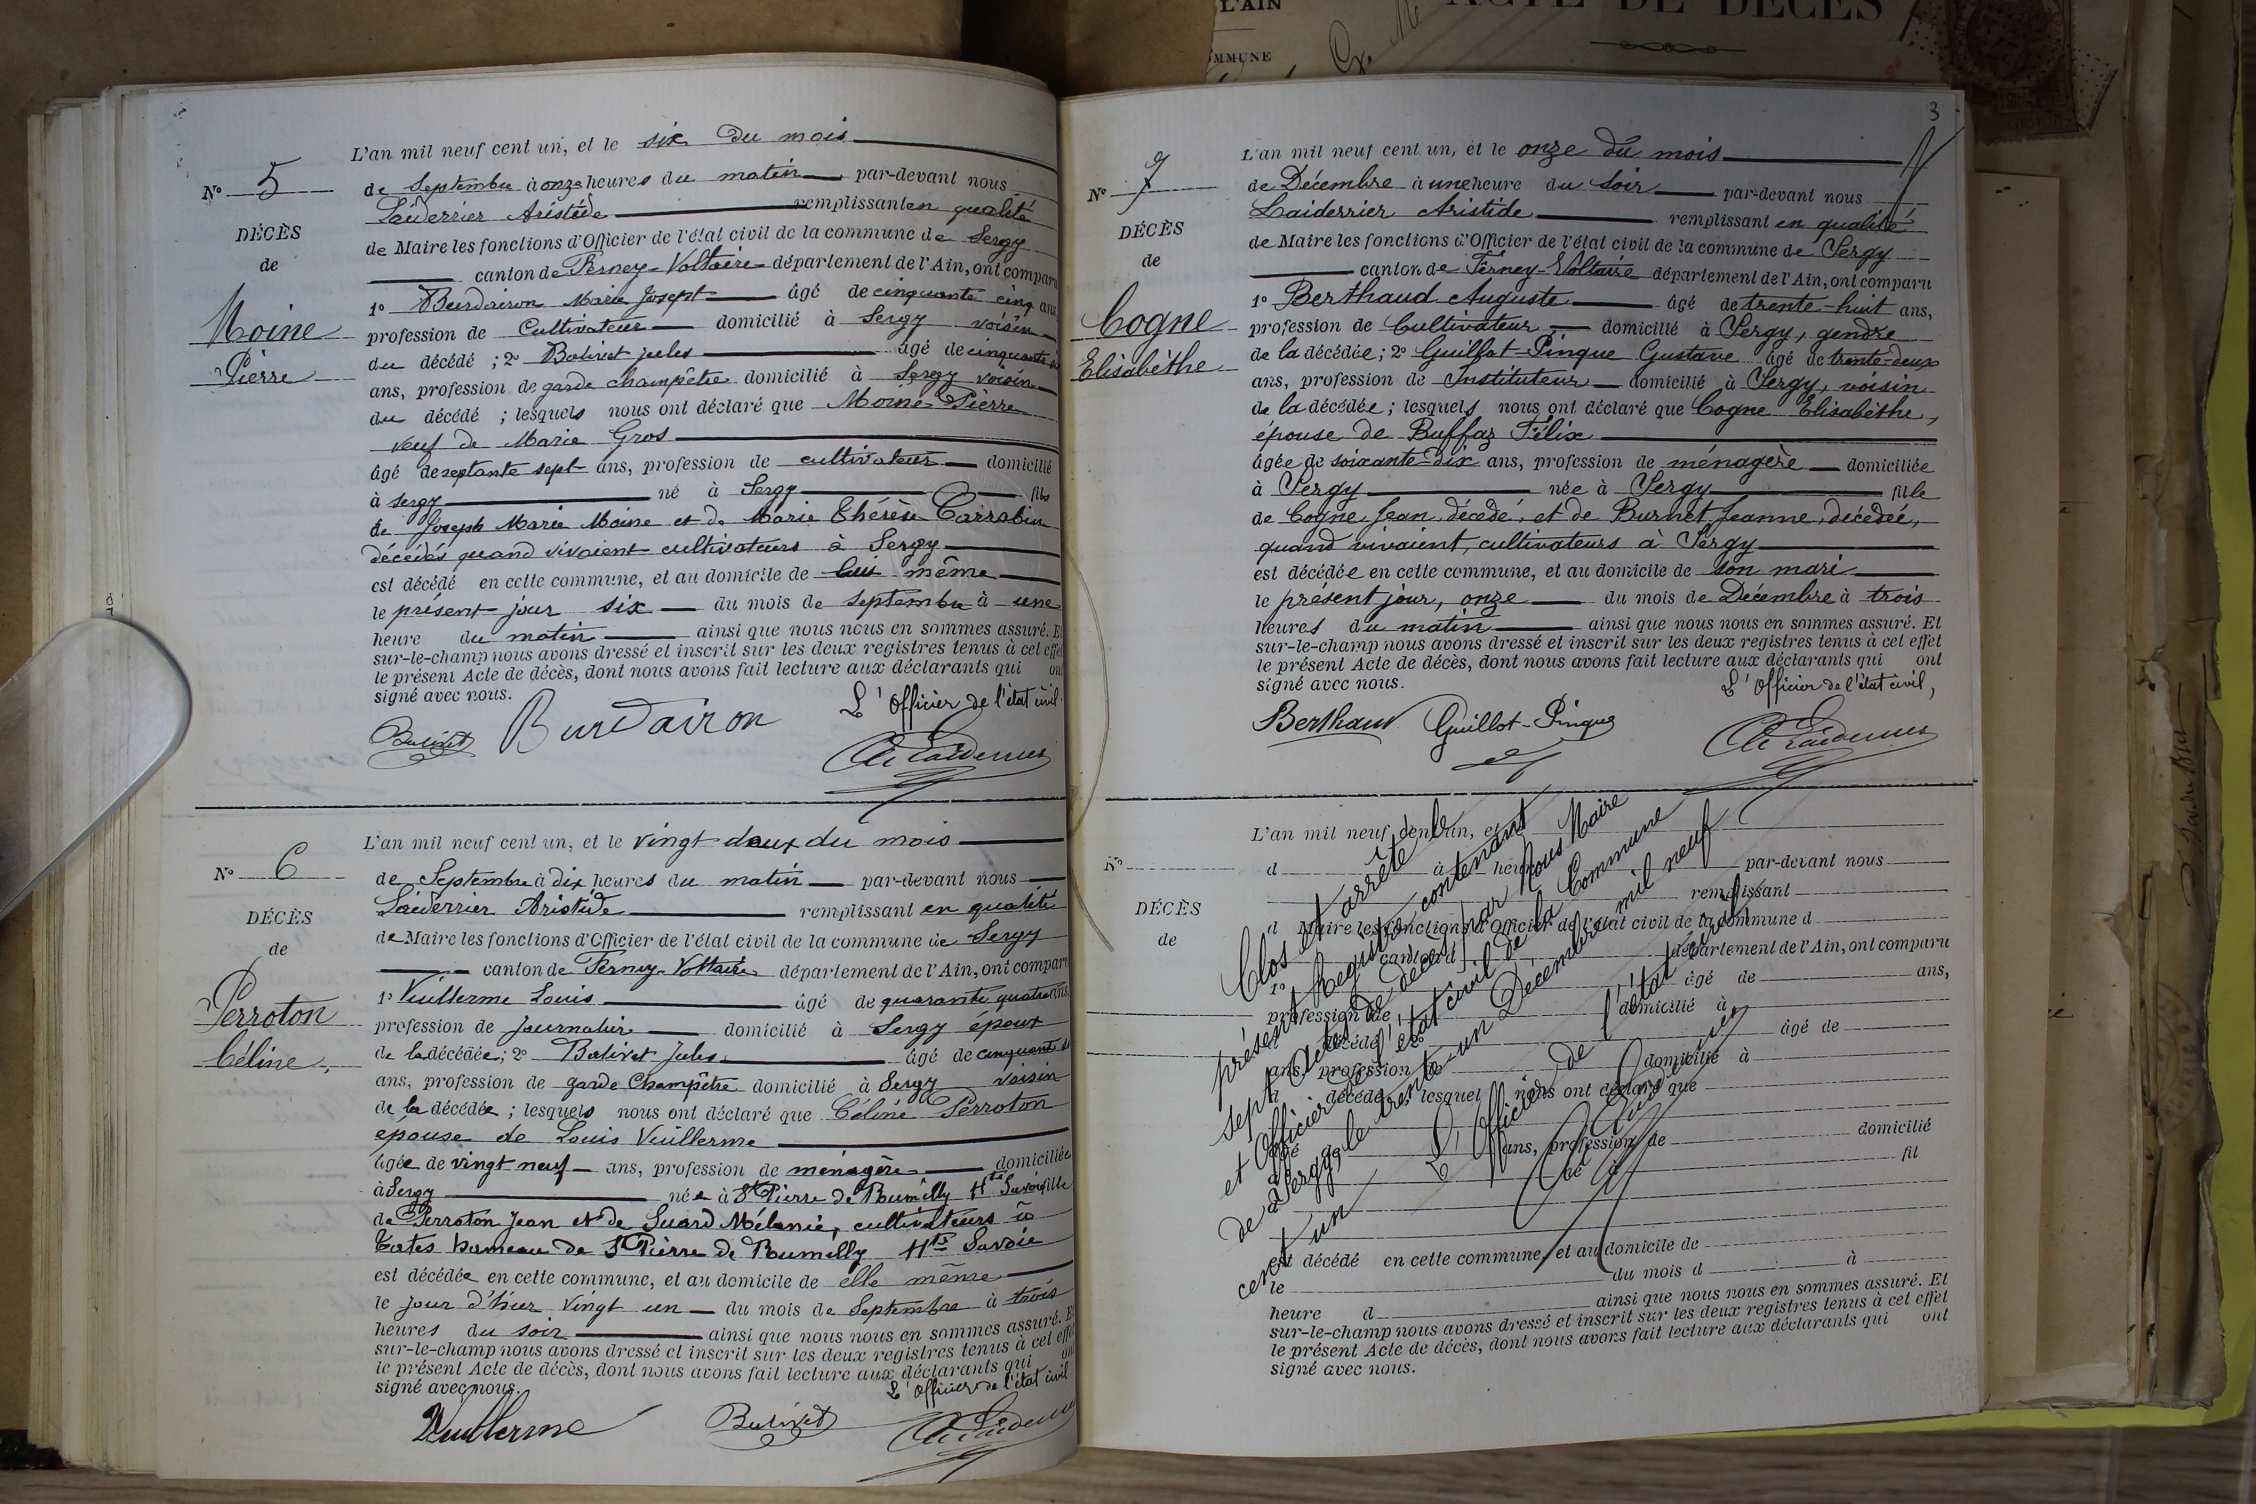 L'AIN
ACTE DE DÉCÈS
COMMUNE
L'an mil neuf cent un, et le six du mois
N° 5
de Septembre à onze heures du matin par-devant nous
Laiderrier Aristide remplissant en qualité
DÉCÈS
de Maire les fonctions d'Officier de l'état civil de la commune de Sergy
de
canton de Ferney-Voltaire département de l'Ain, ont comparu
1° Burdairon Marie Joseph âgé de cinquante cinq ans
Moine
profession de Cultivateur domicilié à Sergy voisin
du décédé ; 2° Balivet jules âgé de cinquante
Pierre
ans, profession de garde champêtre domicilié à Sergy voisin
du décédé ; lesquels nous ont déclaré que Moine Pierre
veuf de Marie Gros
âgé de septante sept ans, profession de cultivateur domicilié
à Sergy né à Sergy fils
de Joseph Marie Moine et de Marie Thérèse Carrabin
décédés quand vivaient cultivateurs à Sergy
est décédé en cette commune, et au domicile de lui même
le présent jour six du mois de septembre à une
heure du matin ainsi que nous nous en sommes assuré. Et
sur-le-champ nous avons dressé et inscrit sur les deux registres tenus à cet effet
le présent Acte de décès, dont nous avons fait lecture aux déclarants qui ont
signé avec nous.
L'Officier de l'état civil
Balivet Burdairon A Laiderrier
L'an mil neuf cent un, et le vingt deux du mois
N° 6
de Septembre à dix heures du matin par-devant nous
Laiderrier Aristide remplissant en qualité
DÉCÈS
de Maire les fonctions d'Officier de l'état civil de la commune de Sergy
de
canton de Ferney-Voltaire département de l'Ain, ont comparu
1° Vuillerme Louis âgé de quarante quatre ans,
Perroton
profession de Journalier domicilié à Sergy époux
Céline
de la décédée ; 2° Balivet Jules âgé de cinquante
ans, profession de garde Champêtre domicilié à Sergy voisin
de la décédée ; lesquels nous ont déclaré que Céline Perroton
épouse de Louis Vuillerme
âgée de vingt neuf ans, profession de ménagère domiciliée
à Sergy née à St Pierre de Rumilly Hte Savoie fille
de Perroton Jean et de Suard Mélanie, cultivateurs à
hameau de St Pierre de Rumilly Hte Savoie
est décédée en cette commune, et au domicile de elle même
le jour d'hier vingt un du mois de Septembre à trois
heures du soir ainsi que nous nous en sommes assuré. Et
sur-le-champ nous avons dressé et inscrit sur les deux registres tenus à cet effet
le présent Acte de décès, dont nous avons fait lecture aux déclarants qui ont
signé avec nous.
L'Officier de l'état civil
Vuillerme Balivet A Laiderrier
3
L'an mil neuf cent un, et le onze du mois
N° 7
de Décembre à une heure du soir par-devant nous
Laiderrier Aristide remplissant en qualité
DÉCÈS
de Maire les fonctions d'Officier de l'état civil de la commune de Sergy
de
canton de Ferney-Voltaire département de l'Ain, ont comparu
1° Berthaud Auguste âgé de trente-huit ans,
Cogne
profession de Cultivateur domicilié à Sergy, gendre
Elisabèthe
de la décédée ; 2° Guillot-Pingue Gustave âgé de trente-deux
ans, profession de Instituteur domicilié à Sergy, voisin
de la décédée ; lesquels nous ont déclaré que Cogne Elisabèthe,
épouse de Buffaz Félix
âgée de soixante-dix ans, profession de ménagère domiciliée
à Sergy née à Sergy fille
de Cogne Jean, décédé, et de Burnet Jeanne, décédée,
quand vivaient, cultivateurs à Sergy
est décédée en cette commune, et au domicile de son mari
le présent jour, onze du mois de Décembre à trois
heures du matin ainsi que nous nous en sommes assuré. Et
sur-le-champ nous avons dressé et inscrit sur les deux registres tenus à cet effet
le présent Acte de décès, dont nous avons fait lecture aux déclarants qui ont
signé avec nous.
L'Officier de l'état civil,
Berthaud Guillot-Pingue A Laiderrier
L'an mil neuf cent un, et le
N°
d à heure par-devant nous
remplissant
DÉCÈS
d Maire les fonctions d'Officier de l'état civil de la commune d
de
canton d département de l'Ain, ont comparu
1° âgé de ans,
profession de domicilié à
décédé ; 2° âgé de
ans, profession de domicilié à
décédé ; lesquel nous ont déclaré que
âgé de ans, profession de domicilié
à né à fil
est décédé en cette commune, et au domicile de
le du mois d à
heure d ainsi que nous nous en sommes assuré. Et
sur-le-champ nous avons dressé et inscrit sur les deux registres tenus à cet effet
le présent Acte de décès, dont nous avons fait lecture aux déclarants qui ont
signé avec nous.
Clos et arrêté le
présent Registre contenant
sept actes de décès, par Nous Maire
et Officier de l'état civil de la Commune
de Sergy, le trente-un Décembre mil neuf
cent un
L'Officier de l'état civil
A Laiderrier